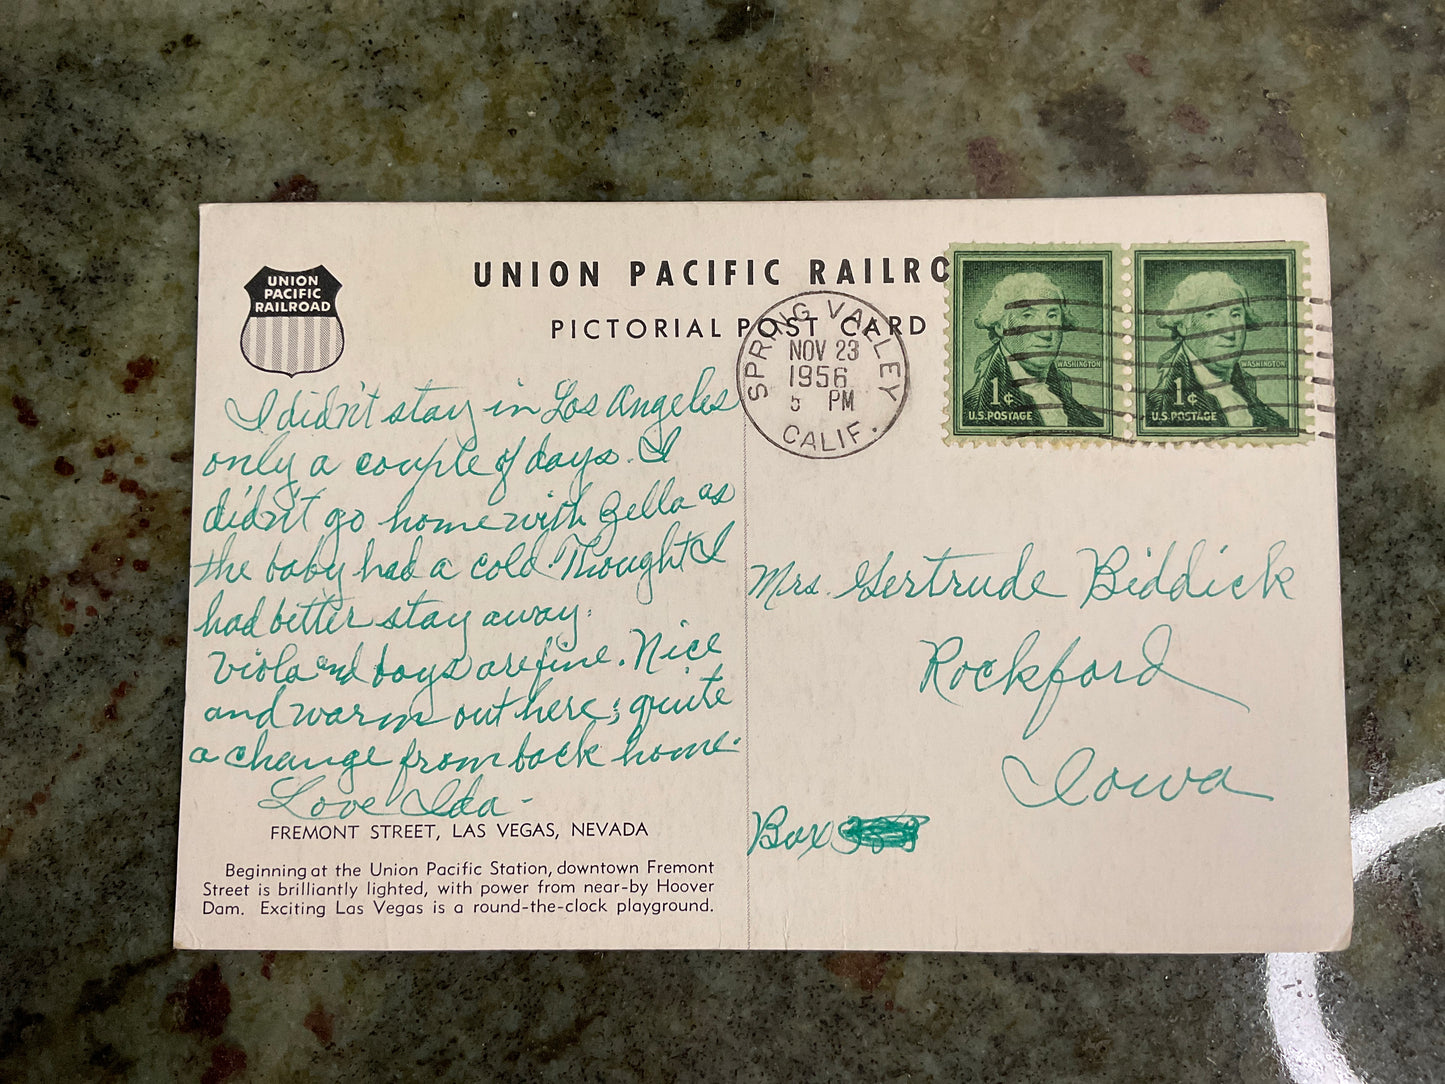 UNION
PACIFIC
RAILROAD
UNION PACIFIC RAILRO
PICTORIAL POST CARD
SPRING VALLEY
NOV 23
1956
5 PM
CALIF.
WASHINGTON
1¢
U.S. POSTAGE
WASHINGTON
1¢
U.S. POSTAGE
I didn't stay in Los Angeles
only a couple of days. I
didn't go home with Zella as
the baby had a cold. Thought I
had better stay away.
Viola and boys are fine. Nice
and warm out here; quite
a change from back home.
Love Ida -
FREMONT STREET, LAS VEGAS, NEVADA
Beginning at the Union Pacific Station, downtown Fremont
Street is brilliantly lighted, with power from near-by Hoover
Dam. Exciting Las Vegas is a round-the-clock playground.
Mrs. Gertrude Biddick
Rockford
Iowa
Box